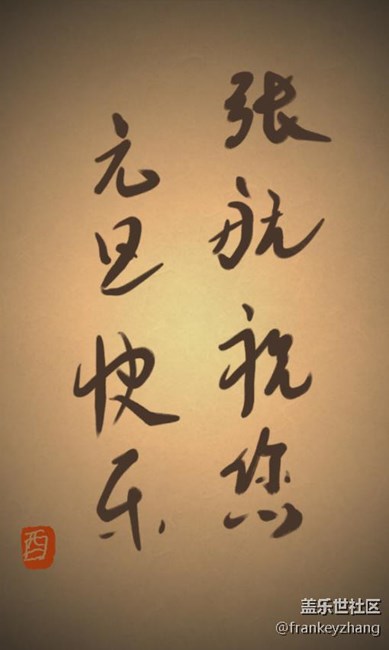 张航祝您
元旦快乐
酉
盖乐世社区
@frankeyzhang